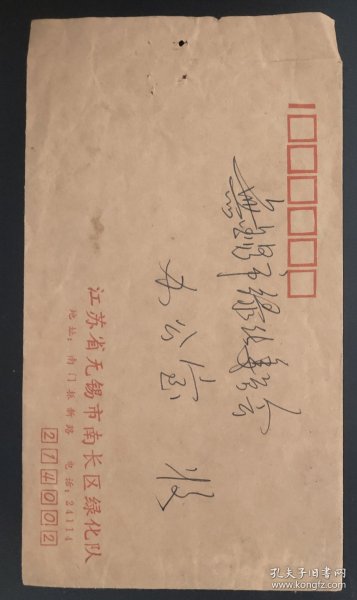 無锡市绿化委员会
办公室 收
江苏省无锡市南长区绿化队
地址：南门报新路 电话：24114
214002
孔夫子旧书网
www.kongfz.com